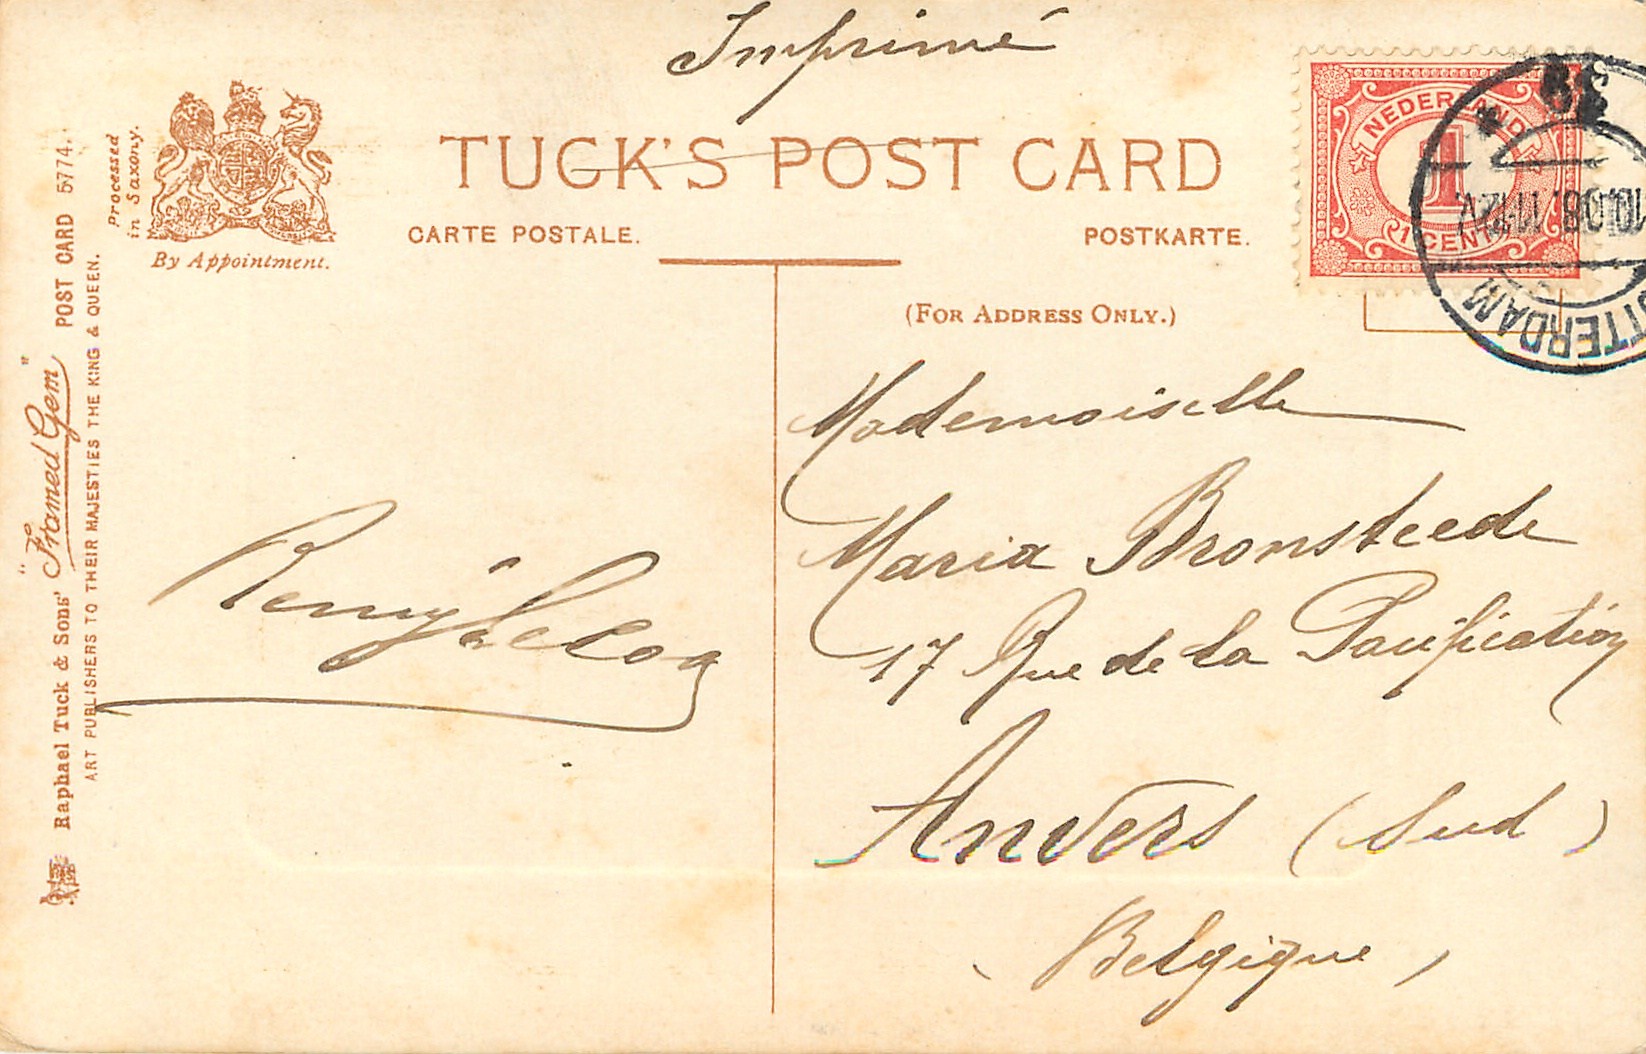 Imprimé
TUCK'S POST CARD
CARTE POSTALE.
POSTKARTE.
(FOR ADDRESS ONLY.)
Processed
in Saxony.
By Appointment.
Raphael Tuck & Sons' "Framed Gem" POST CARD 5774.
ART PUBLISHERS TO THEIR MAJESTIES THE KING & QUEEN.
NEDERLAND
1
1 CENT
TTERDAM
Mademoiselle
Maria Bronsteede
17 Rue de la Pacification
Anvers (Sud)
Belgique